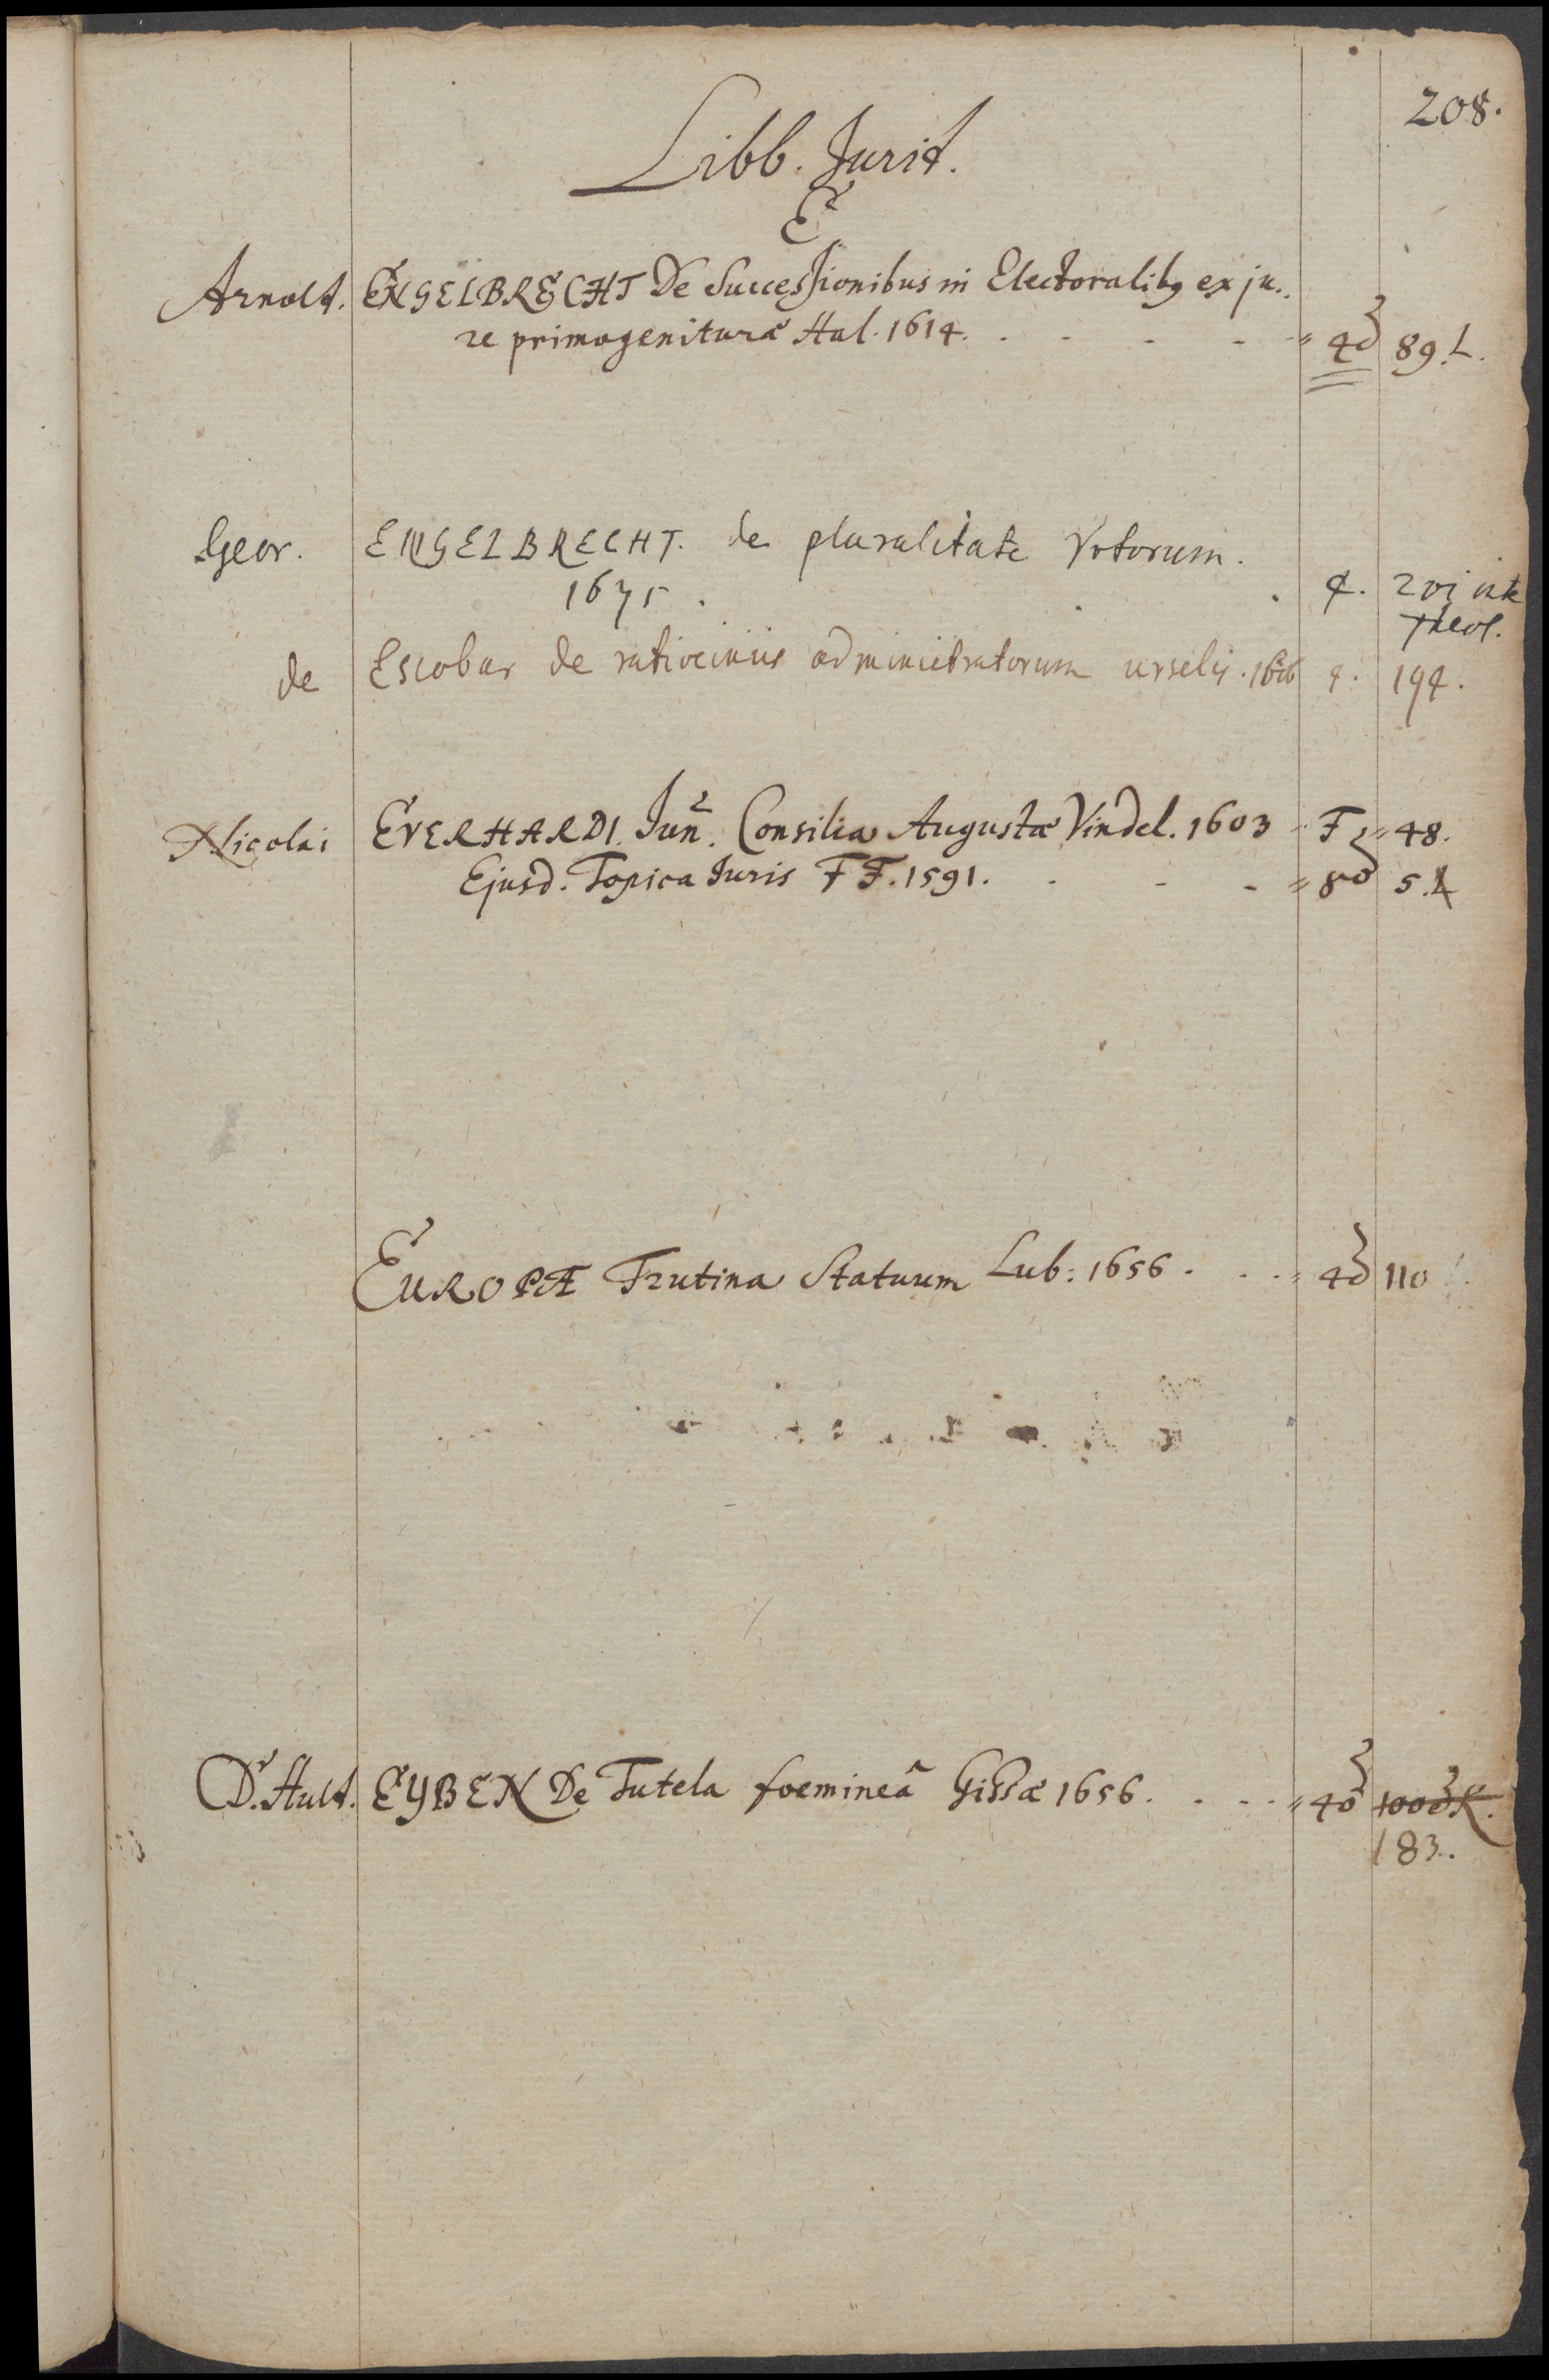 208.
Libb. Jurid.
E
Arnold. ENGELBRECHT De Successionibus in Electoralibꝯ ex ju-
re primogenituræ Hal. 1614. . - - - " 4ꝺ 89. L.
Geor. ENGELBRECHT. de pluralitate Votorum.
1675 . . . 4. 201 inte
Theol.
de Escobar de ratiociniis administratorum urselis. 1626 4. 194.
Nicolai EVERHARDI. Jun̄. Consilia Augustæ Vindel. 1603 " F " 48.
Ejusd. Topica Juris FF. 1591. . - - " 8o 5.
EUROPÆ Trutina Statuum Lub: 1656. . . " 4ꝺ 110
D. Huld. EYBEN De Tutela foemineâ Gissæ 1656. . . . " 4o 100
183.